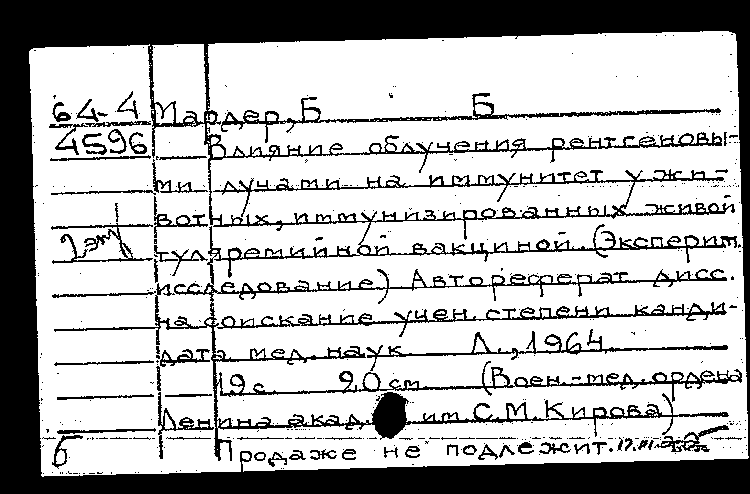 64-4 Мардер, Б Б
4596 Влияние облучения рентгеновы-
ми лучами на иммунитет у жи-
вотных, иммунизированных живой
2 эк туляремийной вакциной. (Эксперим.
исследование) Автореферат дисс.
на соискание учен. степени канди-
дата мед. наук Л., 1964
19 с. 20 см (Воен.-мед. ордена
Ленина акад. им. С.М. Кирова)
Б Продаже не подлежит.